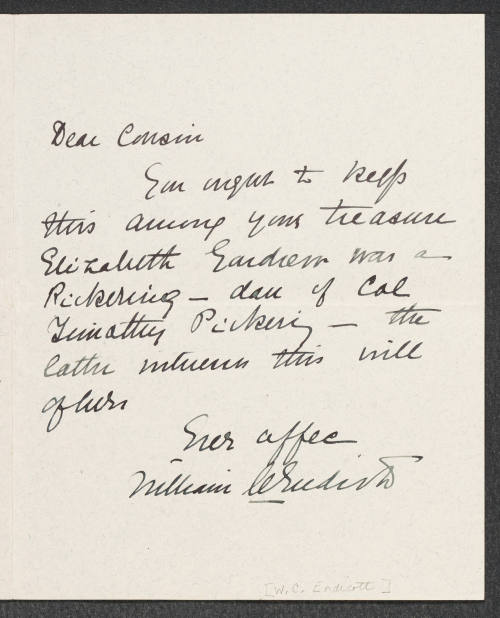 Dear Cousin
You ought to keep
this among your treasure
Elizabeth Gardner was a
Pickering – dau of Col
Timothy Pickering – the
latter witnesses this will
of hers
Ever affec
William C Endicott
[W.C. Endicott]